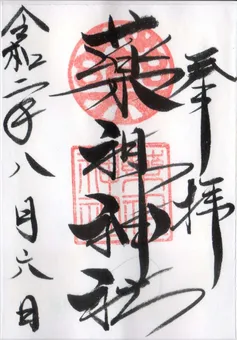 奉拝
薬祖神社
令和二年八月六日